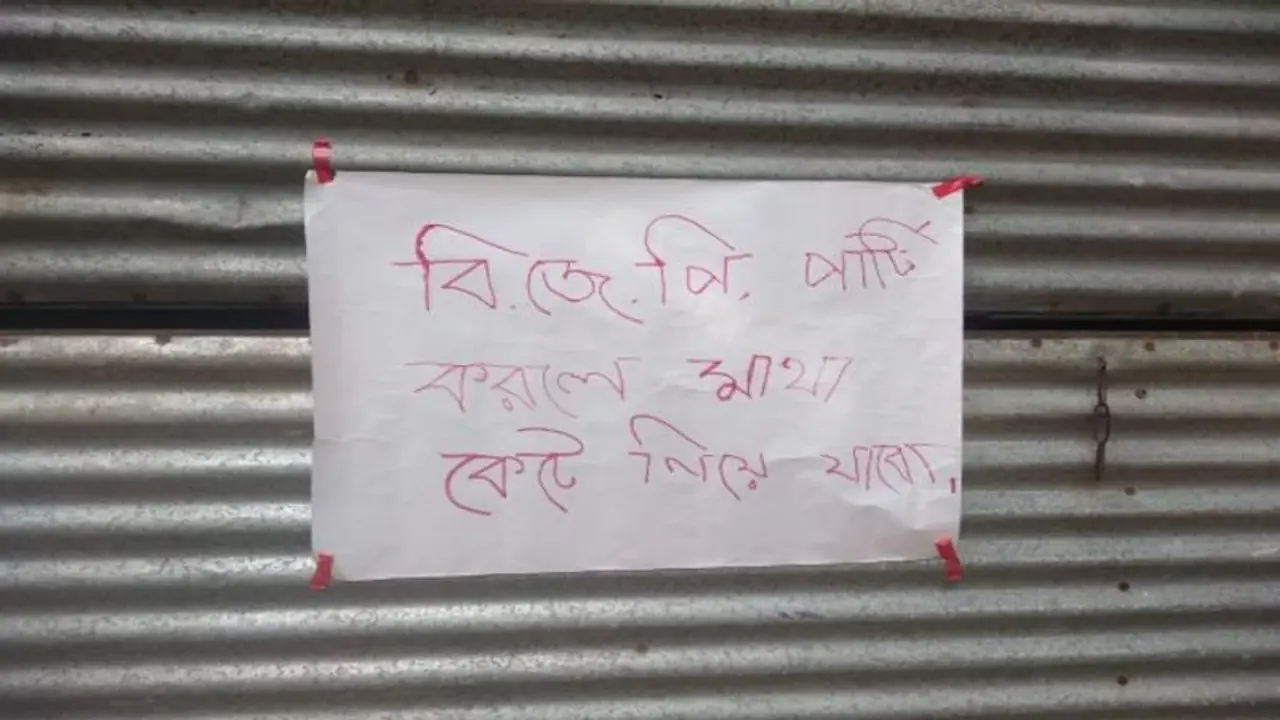 বি.জে.পি. পার্টি
করলে মাথা
কেটে নিয়ে যাবো।